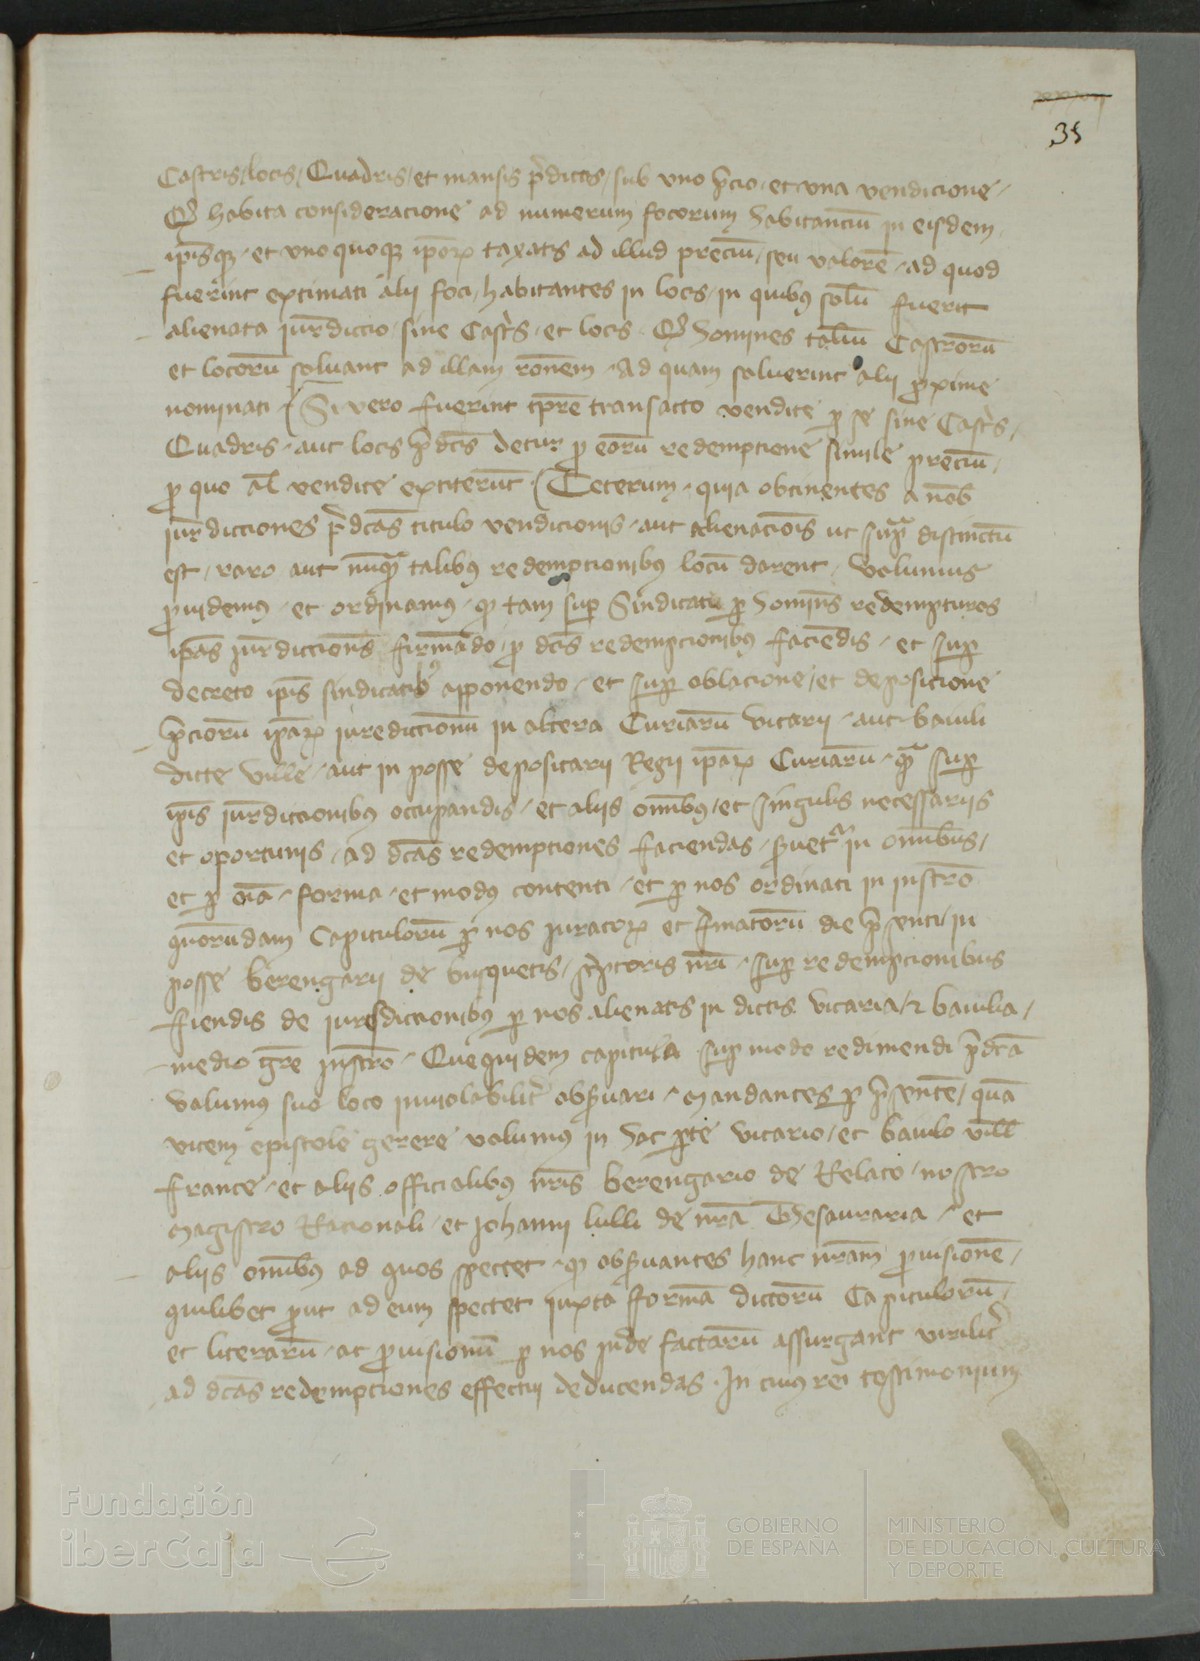 35
Castris, locis, Quadris, et mansis p̄dictis, sub vno p̄cio, et vna vendicione,
Qd habita consideracione ad numerum focorum habitanciū in eisdem
ip̄isqȝ, et vno quoqȝ ip̄oꝝ taxatis ad illud preciū, seu valorē, ad quod
fuerint extimati alij foci, habitantes in locis, in quibꝰ solū fuerit
alienata iur̄diccio, sine Cast̄s, et locis, Qd homines taliū Castrorū
et locorū soluant ad illam ron̄em, Ad quam soluerint alij ꝓxime
nominati, Si vero fuerint tp̄re transacto vendite ꝑ se sine Cast̄s,
Quadris, aut locis p̄dc̄is detur ꝓ eorū redemptione simile preciū,
ꝓ quo al̄ vendite extiterūt, Ceterum, quia obtinentes a nob̄
iur̄dicciones p̄dc̄as titulo vendicionis, aut alienacōis ut supᵃ distinctū
est, raro aut nūqᵃ talibꝰ redemptionibꝰ locū darent, Volumus
ꝓuidemꝰ, et ordinamꝰ, qd tam suꝑ Sindicatu ꝑ homīes redempturos
ip̄as iur̄dicciōes firmādo, ꝓ dc̄is redempcionibꝰ faciēdis, et suꝑ
decreto ip̄is sindicatibꝰ apponendo, et suꝑ oblacione, et deposicione
p̄ciorū ip̄aꝝ iuredictionū in altera Curiarū vicarij, aut baiuli
dicte ville, aut in posse depositarij Regij ip̄aꝝ Curiarū, qᵃ suꝑ
ip̄is iur̄dictionibꝰ occupandis, et aliis om̄ibꝰ, et singulis necessariis
et oportunis, ad dc̄as redemptiones faciendas, ẜuetʳ in om̄ibus,
et ꝑ oīa, forma, et modꝰ contenti, et ꝑ nos ordinati in inst̄ro
quorūdam Capitulorū ꝑ nos iuratoꝝ et firmatorū die p̄senti, in
posse berengarij de busquetis, sc̄ptoris nr̄i, suꝑ redempcionibus
fiendis de iuresdictionibꝰ ꝑ nos alienatis in dictis vicaria, ⁊ baiulia,
medio gr̄e inst̄ro, Que quidem capitula suꝑ modo redimendi p̄dc̄a
volumꝰ suo loco inuiolabilit̄ obẜuari, Mandantes ꝑ p̄sentē, quā
vicem epistole gerere volumꝰ in hac ꝑte vicario, et baiulo vill̄
france, et aliis officialibꝰ nr̄is berengario de Relato, nostro
Magistro Racionali, et Johanni lulli de nr̄a Thesauraria, et
aliis om̄ibꝰ ad quos spectet, qd obẜuantes hanc nr̄am ꝓuisionē,
quilibet ꝓut ad eum spectet iuxta formā dictorū Capitulorū,
et literarū, ac ꝓuisionū ꝑ nos inde factarū assurgant virilit̄
ad dc̄as redemptiones effectui deducendas. In cuius rei testimonium
Fundación
iberCaja
GOBIERNO
DE ESPAÑA
MINISTERIO
DE EDUCACIÓN, CULTURA
Y DEPORTE